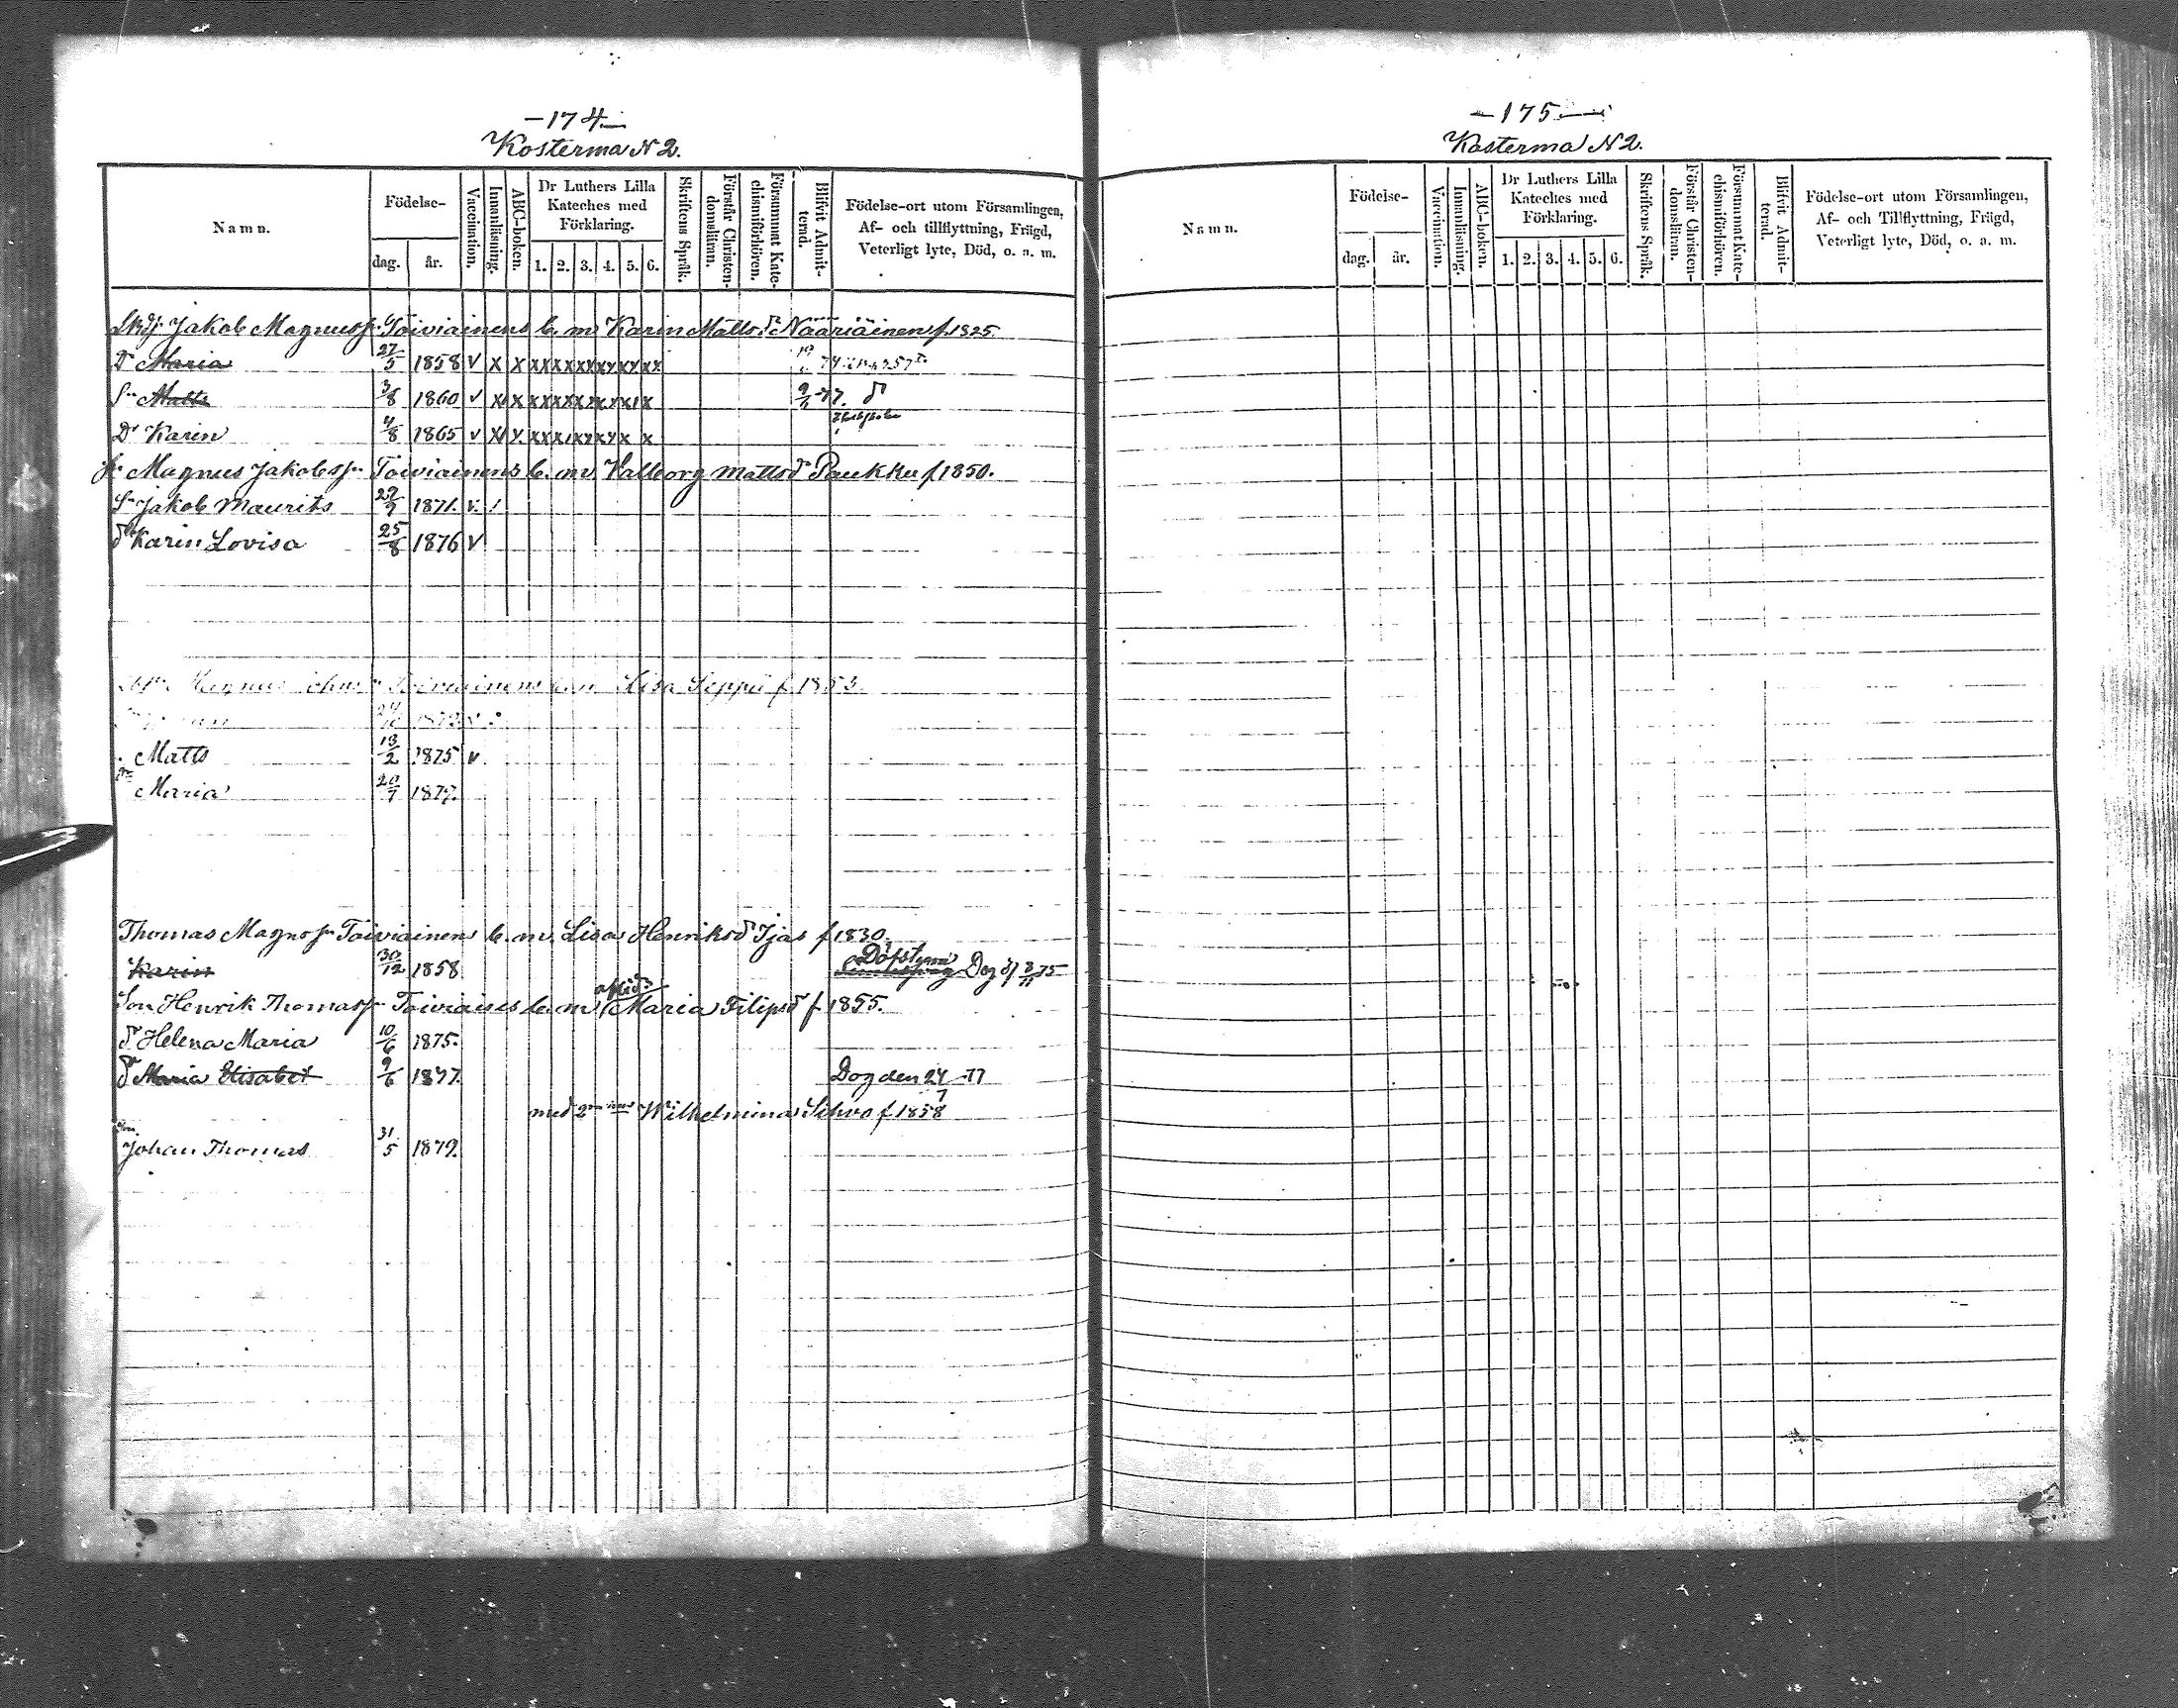 -174-
Kosterma N 2.
Namn.
Födelse-
dag.
år.
Vaccination.
Innanläsning.
ABC-boken.
Dr Luthers Lilla Kateches med Förklaring.
1. 2. 3. 4. 5. 6.
Skriftens Språk.
Förstår Christen-domsläran.
Försummat Kate-chismiförhören.
Blifvit Admit-terad.
Födelse-ort utom Församlingen,
Af- och tillflyttning, Frägd,
Veterligt lyte, Död, o. a. m.
Jakob Magnuss. Toiviainens b. m. Karin Mattsdr Naariäinen f. 1825
Dr Maria 27/5 1858 v x x xx xx xx xx xx xx
Sn Matts 3/8 1860 v x x xx xx xx xx x x 77.
Dr Karin 4/8 1865 v x x
Magnus Jakobss. Toiviainens b. m. Valborg Mattsdr Paukku f 1850.
Sn Jakob Maurits 1871. v
dr Karin Lovisa 25/8 1876 v
Magnus Toiviainens Lisa Seppä f 1853.
Matts 13/2 1875 v
Maria 20/7 1879.
Thomas Magnss. Toiviainens b. m. Lisa Henriksdr Ijäs f 1830.
Karin 30/12 1858 Döfstum Dog 75
Son Henrik Thomass. Toiviaises b. m. Maria Filipsd f 1855.
dr Helena Maria 10/6 1875.
dr Maria Elisabet 9/6 1877. Dog den 24/7 -77
med 2 Wilhelmina Sihvo f 1858
Johan Thomas 31/5 1879.
-175-
Kosterma N 2.
Namn.
Födelse-
dag.
år.
Vaccination.
Innanläsning.
ABC-boken.
Dr Luthers Lilla Kateches med Förklaring.
1. 2. 3. 4. 5. 6.
Skriftens Språk.
Förstår Christen-domsläran.
Försummat Kate-chismiförhören.
Blifvit Admit-terad.
Födelse-ort utom Församlingen,
Af- och Tillflyttning, Frägd,
Veterligt lyte, Död, o. a. m.